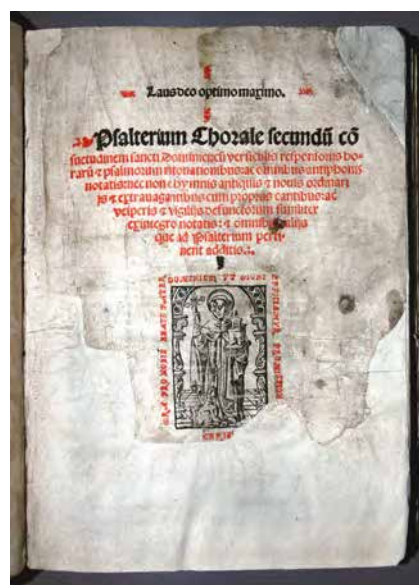 Laus deo optimo maximo.
Psalterium Chorale secundū cō
suetudinem sancti Dominici:cū versiculis responsoriis ho-
rarū ⁊ psalmorum intonationibus:ac omnibus antiphonis
notatis:nec non ⁊ hymnis antiquis ⁊ nouis ordinari
is ⁊ extrauagantibus cum propriis cantibus:ac
vesperis ⁊ vigiliis defunctorum similiter
ex integro notatis: ⁊ omnibus aliis
que ad Psalterium perti-
nent additis.
ORA PRO NOBIS BEATE PATER
DOMINICE VT DIGNI
EFFICIAMVR